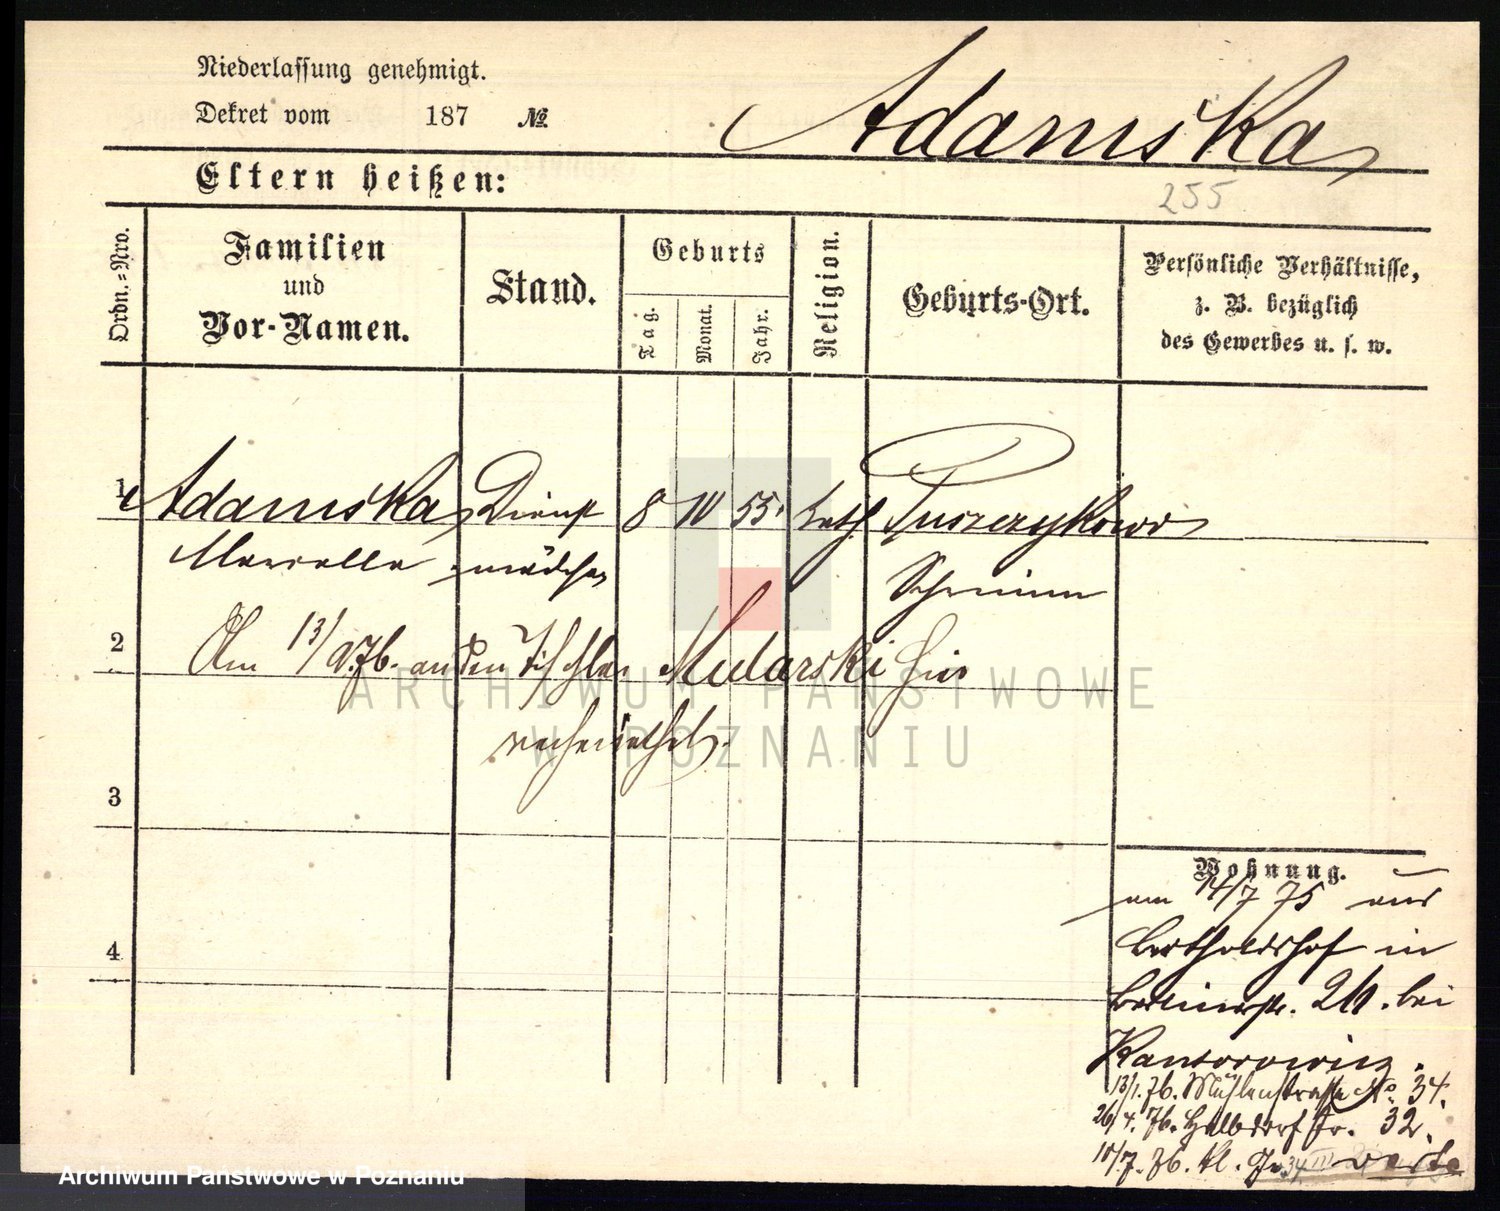 Niederlassung genehmigt.
Dekret vom 187 №
Adamska
Eltern heißen:
255
Ordn.-Nro.
Familien
und
Vor-Namen.
Stand.
Geburts
Tag.
Monat.
Jahr.
Religion.
Geburts-Ort.
Persönliche Verhältnisse,
z. B. bezüglich
des Gewerbes u. s. w.
1 Adamska Dienst 8 55. kath. Puszczykowo
mädchen Schrimm
2
Am 13/ 76. an den Tischler Mularski hier
verheirathet.
3
4
Wohnung.
am 14/7 75 aus
Bertholdshof in
26. bei
Kantorowicz.
13/1. 76. Mühlenstrasse No. 34.
26/4. 76. Halbdorfstr. 32.
10/7. 76. kl. verte
ARCHIWUM PAŃSTWOWE
W POZNANIU
Archiwum Państwowe w Poznaniu